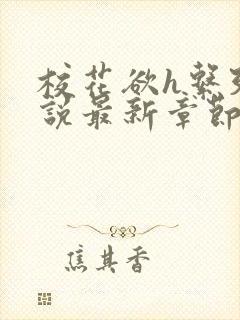 校花欲h繫
說最新章節
焦其香